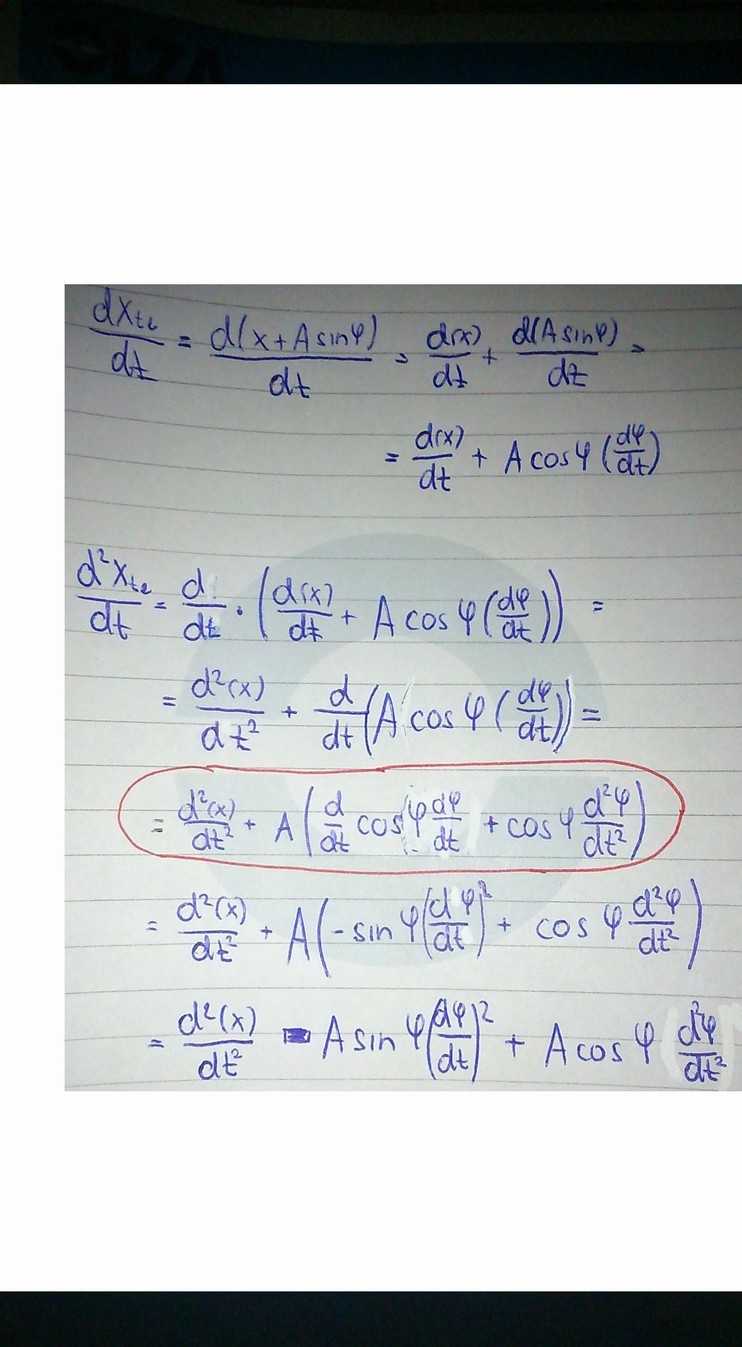 dx_{t2}/dt = d(x + A sin φ)/dt = d(x)/dt + d(A sin φ)/dt =
= d(x)/dt + A cos φ (dφ/dt)
d²x_{t2}/dt = d/dt · (d(x)/dt + A cos φ (dφ/dt)) =
= d²(x)/dt² + d/dt (A cos φ (dφ/dt)) =
= d²(x)/dt² + A (d/dt cos φ dφ/dt + cos φ d²φ/dt²)
= d²(x)/dt² + A (- sin φ (dφ/dt)² + cos φ d²φ/dt²)
= d²(x)/dt² - A sin φ (dφ/dt)² + A cos φ d²φ/dt²